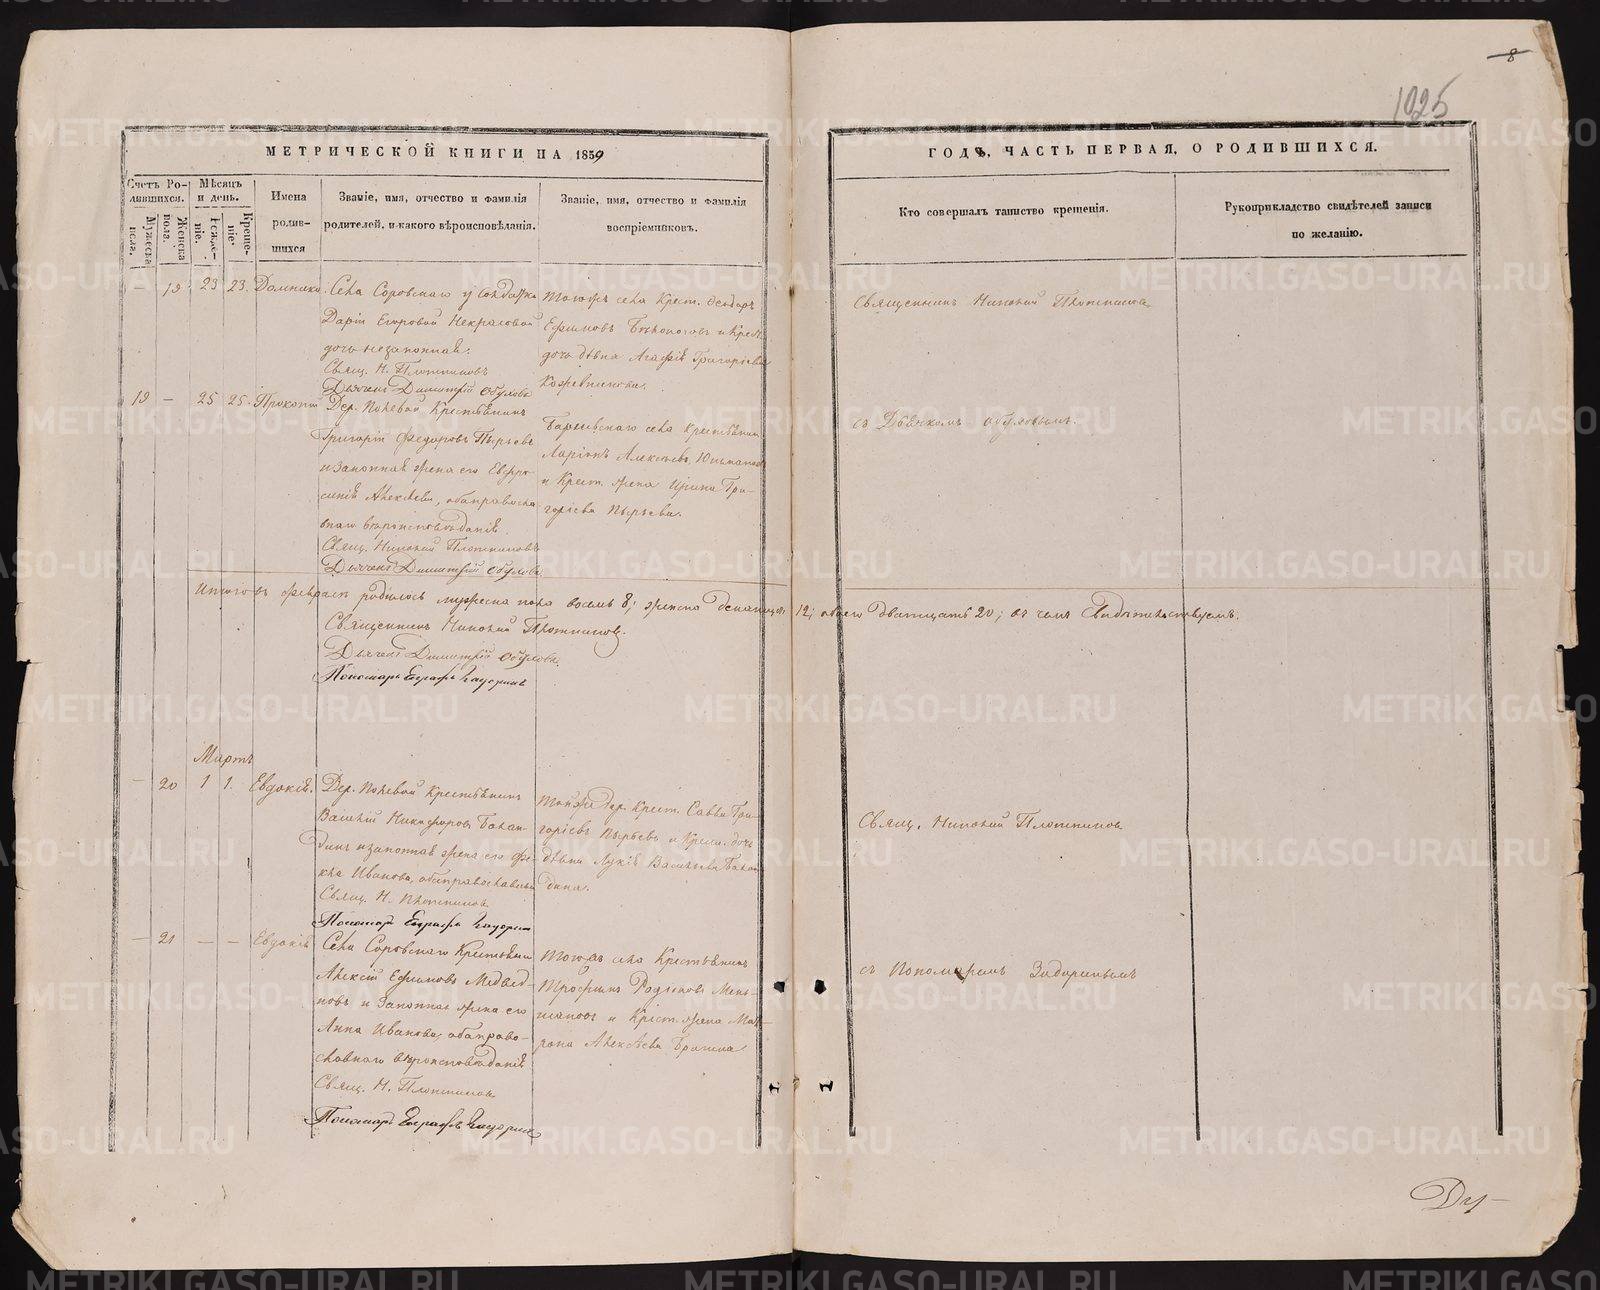 8
1025
МЕТРИЧЕСКОЙ КНИГИ НА 1859
ГОДЪ, ЧАСТЬ ПЕРВАЯ, О РОДИВШИХСЯ.
Счетъ Родившихся.
Мужеска пола.
Женска пола.
Мѣсяцъ и день.
Рожденіе.
Крещеніе.
Имена родившихся
Званіе, имя, отчество и фамилія
родителей, и какого вѣроисповѣданія.
Званіе, имя, отчество и фамилія
воспріемниковъ.
Кто совершалъ таинство крещенія.
Рукоприкладство свидѣтелей записи
по желанію.
— 19 23 23 Домника.
Села Соровскаго у Солдатки
Дарьи Егоровой Некрасовой
дочь незаконная.
Свящ. Н. Плотниковъ
Дьячекъ Димитрій
Тогожъ села Крест. Ѳеодоръ
Ефимовъ Бѣлоноговъ и Крест.
дочь дѣвка Агафія Григорьева
Кожевникова.
Священникъ Николай Плотниковъ
19 — 25 25 Прокопій
Дер. Полевой Крестьянинъ
Григорій Федоровъ Пырьевъ
и законная жена его Евфро-
синія Алексѣева, оба православ-
наго вѣроисповѣданія
Свящ. Николай Плотниковъ
Дьячекъ Димитрій
села Крестьянинъ
Ларіонъ Алексѣевъ
и Крест. жена Ирина Гри-
горьева Пырьева.
съ Дьячкомъ
Итого въ февралѣ родилось мужеска пола восемь 8; женска двенадцать 12; обоего двадцать 20; въ чемъ Свидѣтельствуемъ.
Священникъ Николай Плотниковъ.
Дьячекъ Димитрій
Пономарь Евграфъ
Мартъ
— 20 1 1. Евдокія.
Дер. Полевой Крестьянинъ
Василій Никифоровъ Балан-
динъ и законная жена его Фе-
кла Иванова, оба православныи
Свящ. Н. Плотниковъ
Пономарь Евграфъ
Тойже дер. Крест. Савва Гри-
горьевъ Пырьевъ и Крест. дочь
дѣвка Лукія Васильева Балан-
дина.
Свящ. Николай Плотниковъ
— 21 — — Евдокія
Села Соровскаго Крестьянинъ
Алексій Ефимовъ Медвѣд-
ковъ и Законная жена его
Анна Иванова, оба право-
славнаго вѣроисповѣданія
Свящ. Н. Плотниковъ
Пономарь Евграфъ
Тогожъ села Крестьянинъ
Трофимъ Родіоновъ Мень-
шиковъ и Крест. жена Мат-
рона Алексѣева
съ Пономаремъ
METRIKI.GASO-URAL.RU